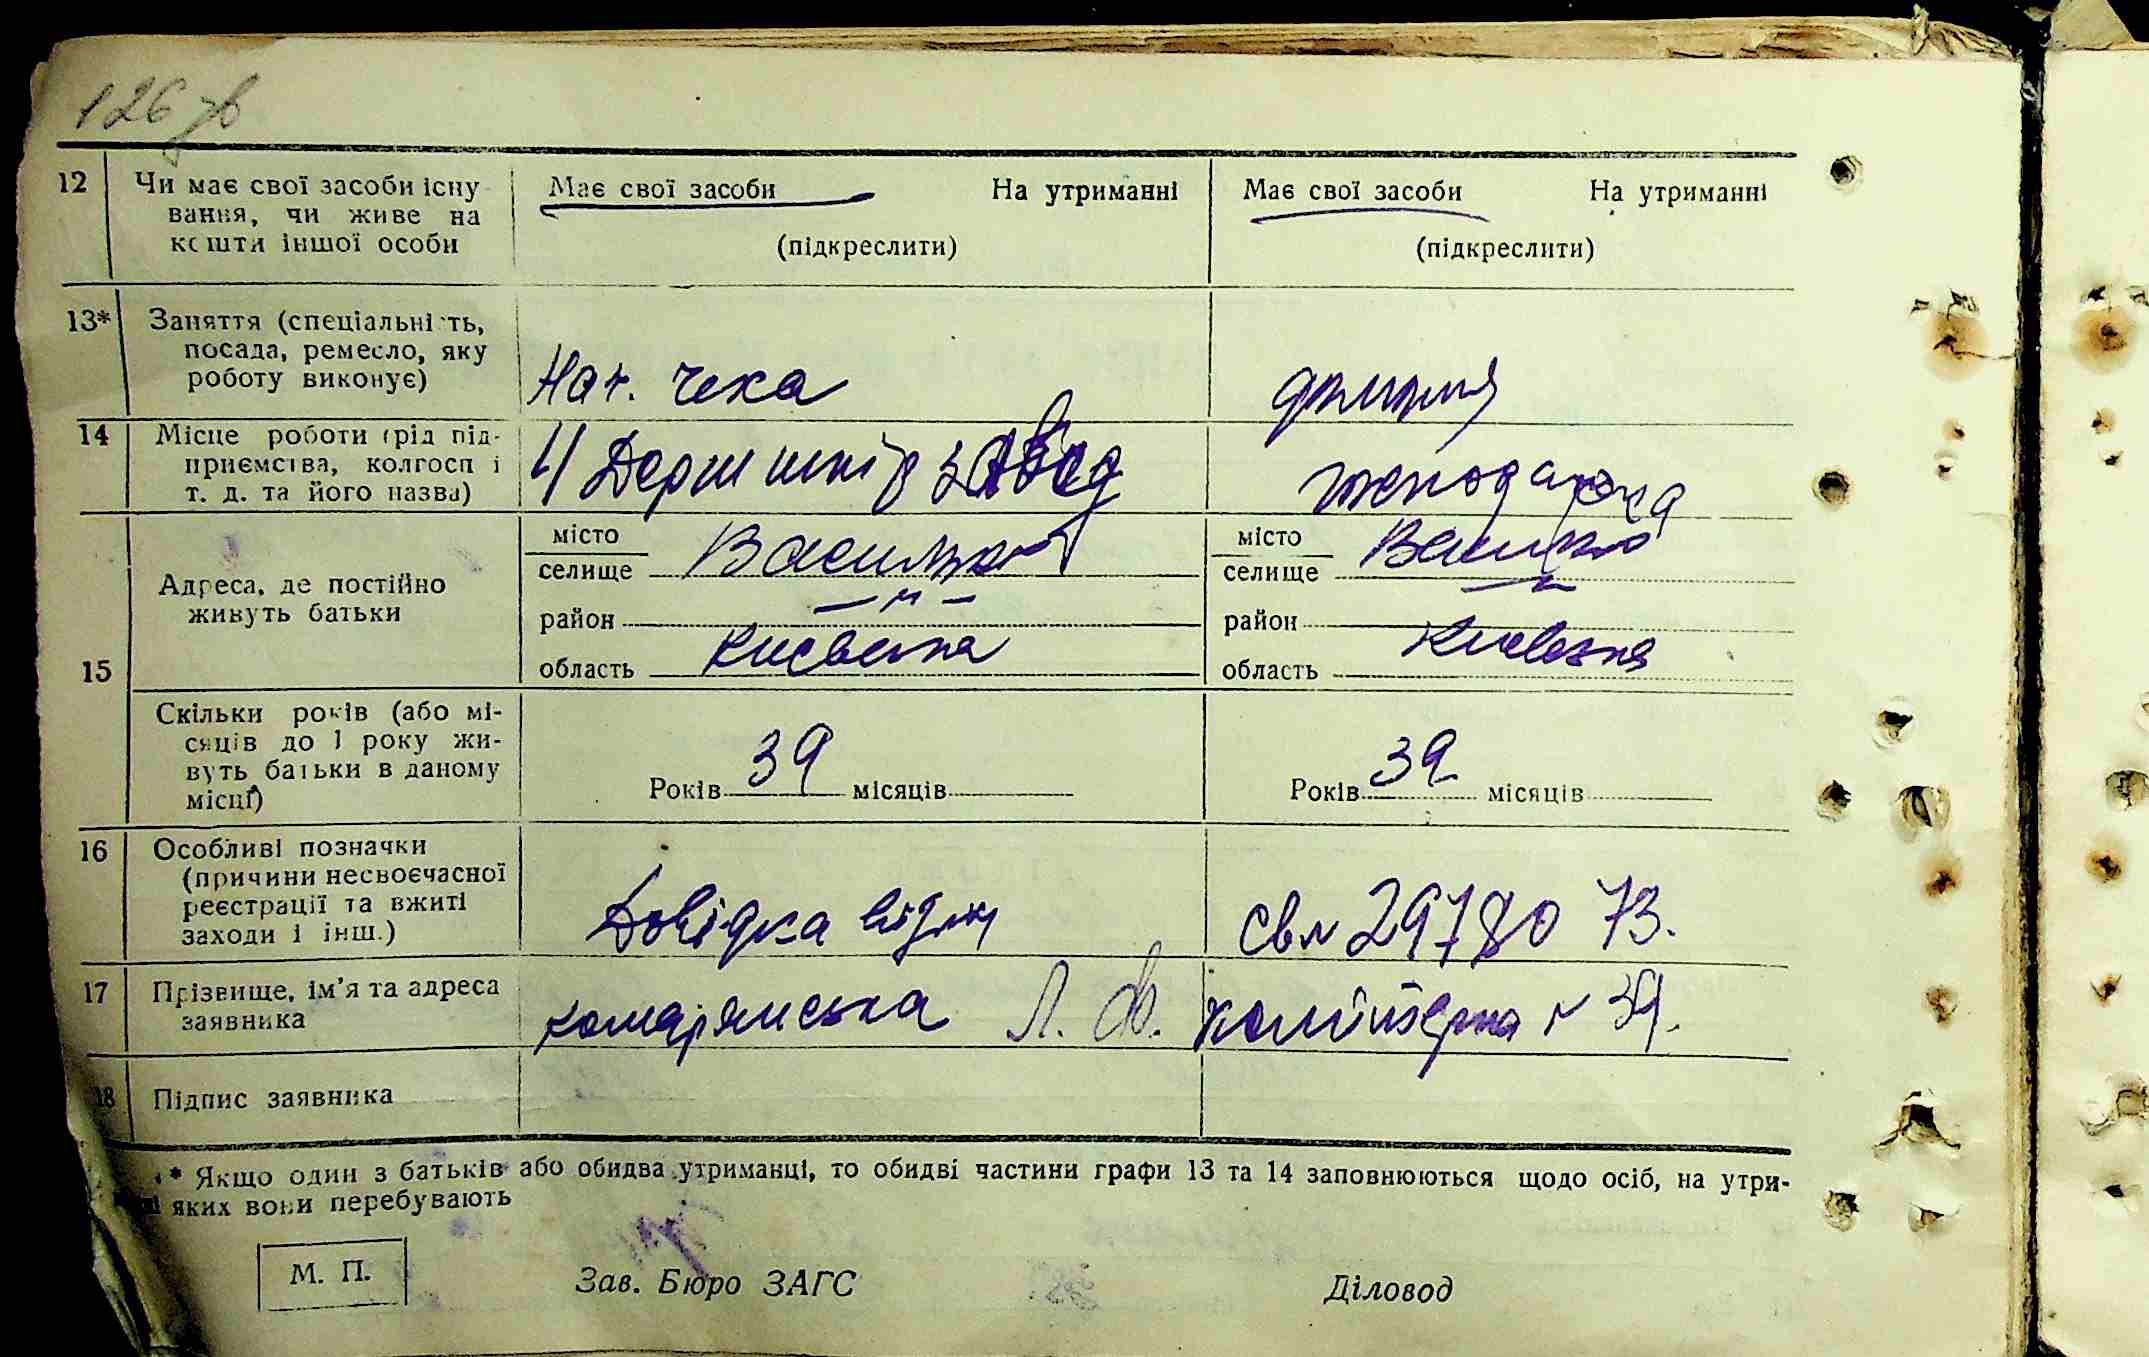 126 зв
12 Чи має свої засоби існу-
вання, чи живе на
кошти іншої особи
Має свої засоби На утриманні
(підкреслити)
Має свої засоби На утриманні
(підкреслити)
13* Заняття (спеціальність,
посада, ремесло, яку
роботу виконує)
Нач. чека
14 Місце роботи (рід під-
приємства, колгосп і
т. д. та його назва)
Держ шкір завод
15
Адреса, де постійно
живуть батьки
місто
селище Васильків
район — " —
область Києвська
місто
селище Васильків
район — " —
область Києвська
Скільки років (або мі-
сяців до 1 року жи-
вуть батьки в даному
місці)
Років 39 місяців
Років 39 місяців
16 Особливі позначки
(причини несвоєчасної
реєстрації та вжиті
заходи і інш.)
Довідка
29780 73.
17 Прізвище, ім'я та адреса
заявника
Комарямська Л. Ф. 39.
18 Підпис заявника
* Якщо один з батьків або обидва утриманці, то обидві частини графи 13 та 14 заповнюються щодо осіб, на утри-
яких вони перебувають
М. П.
Зав. Бюро ЗАГС
Діловод